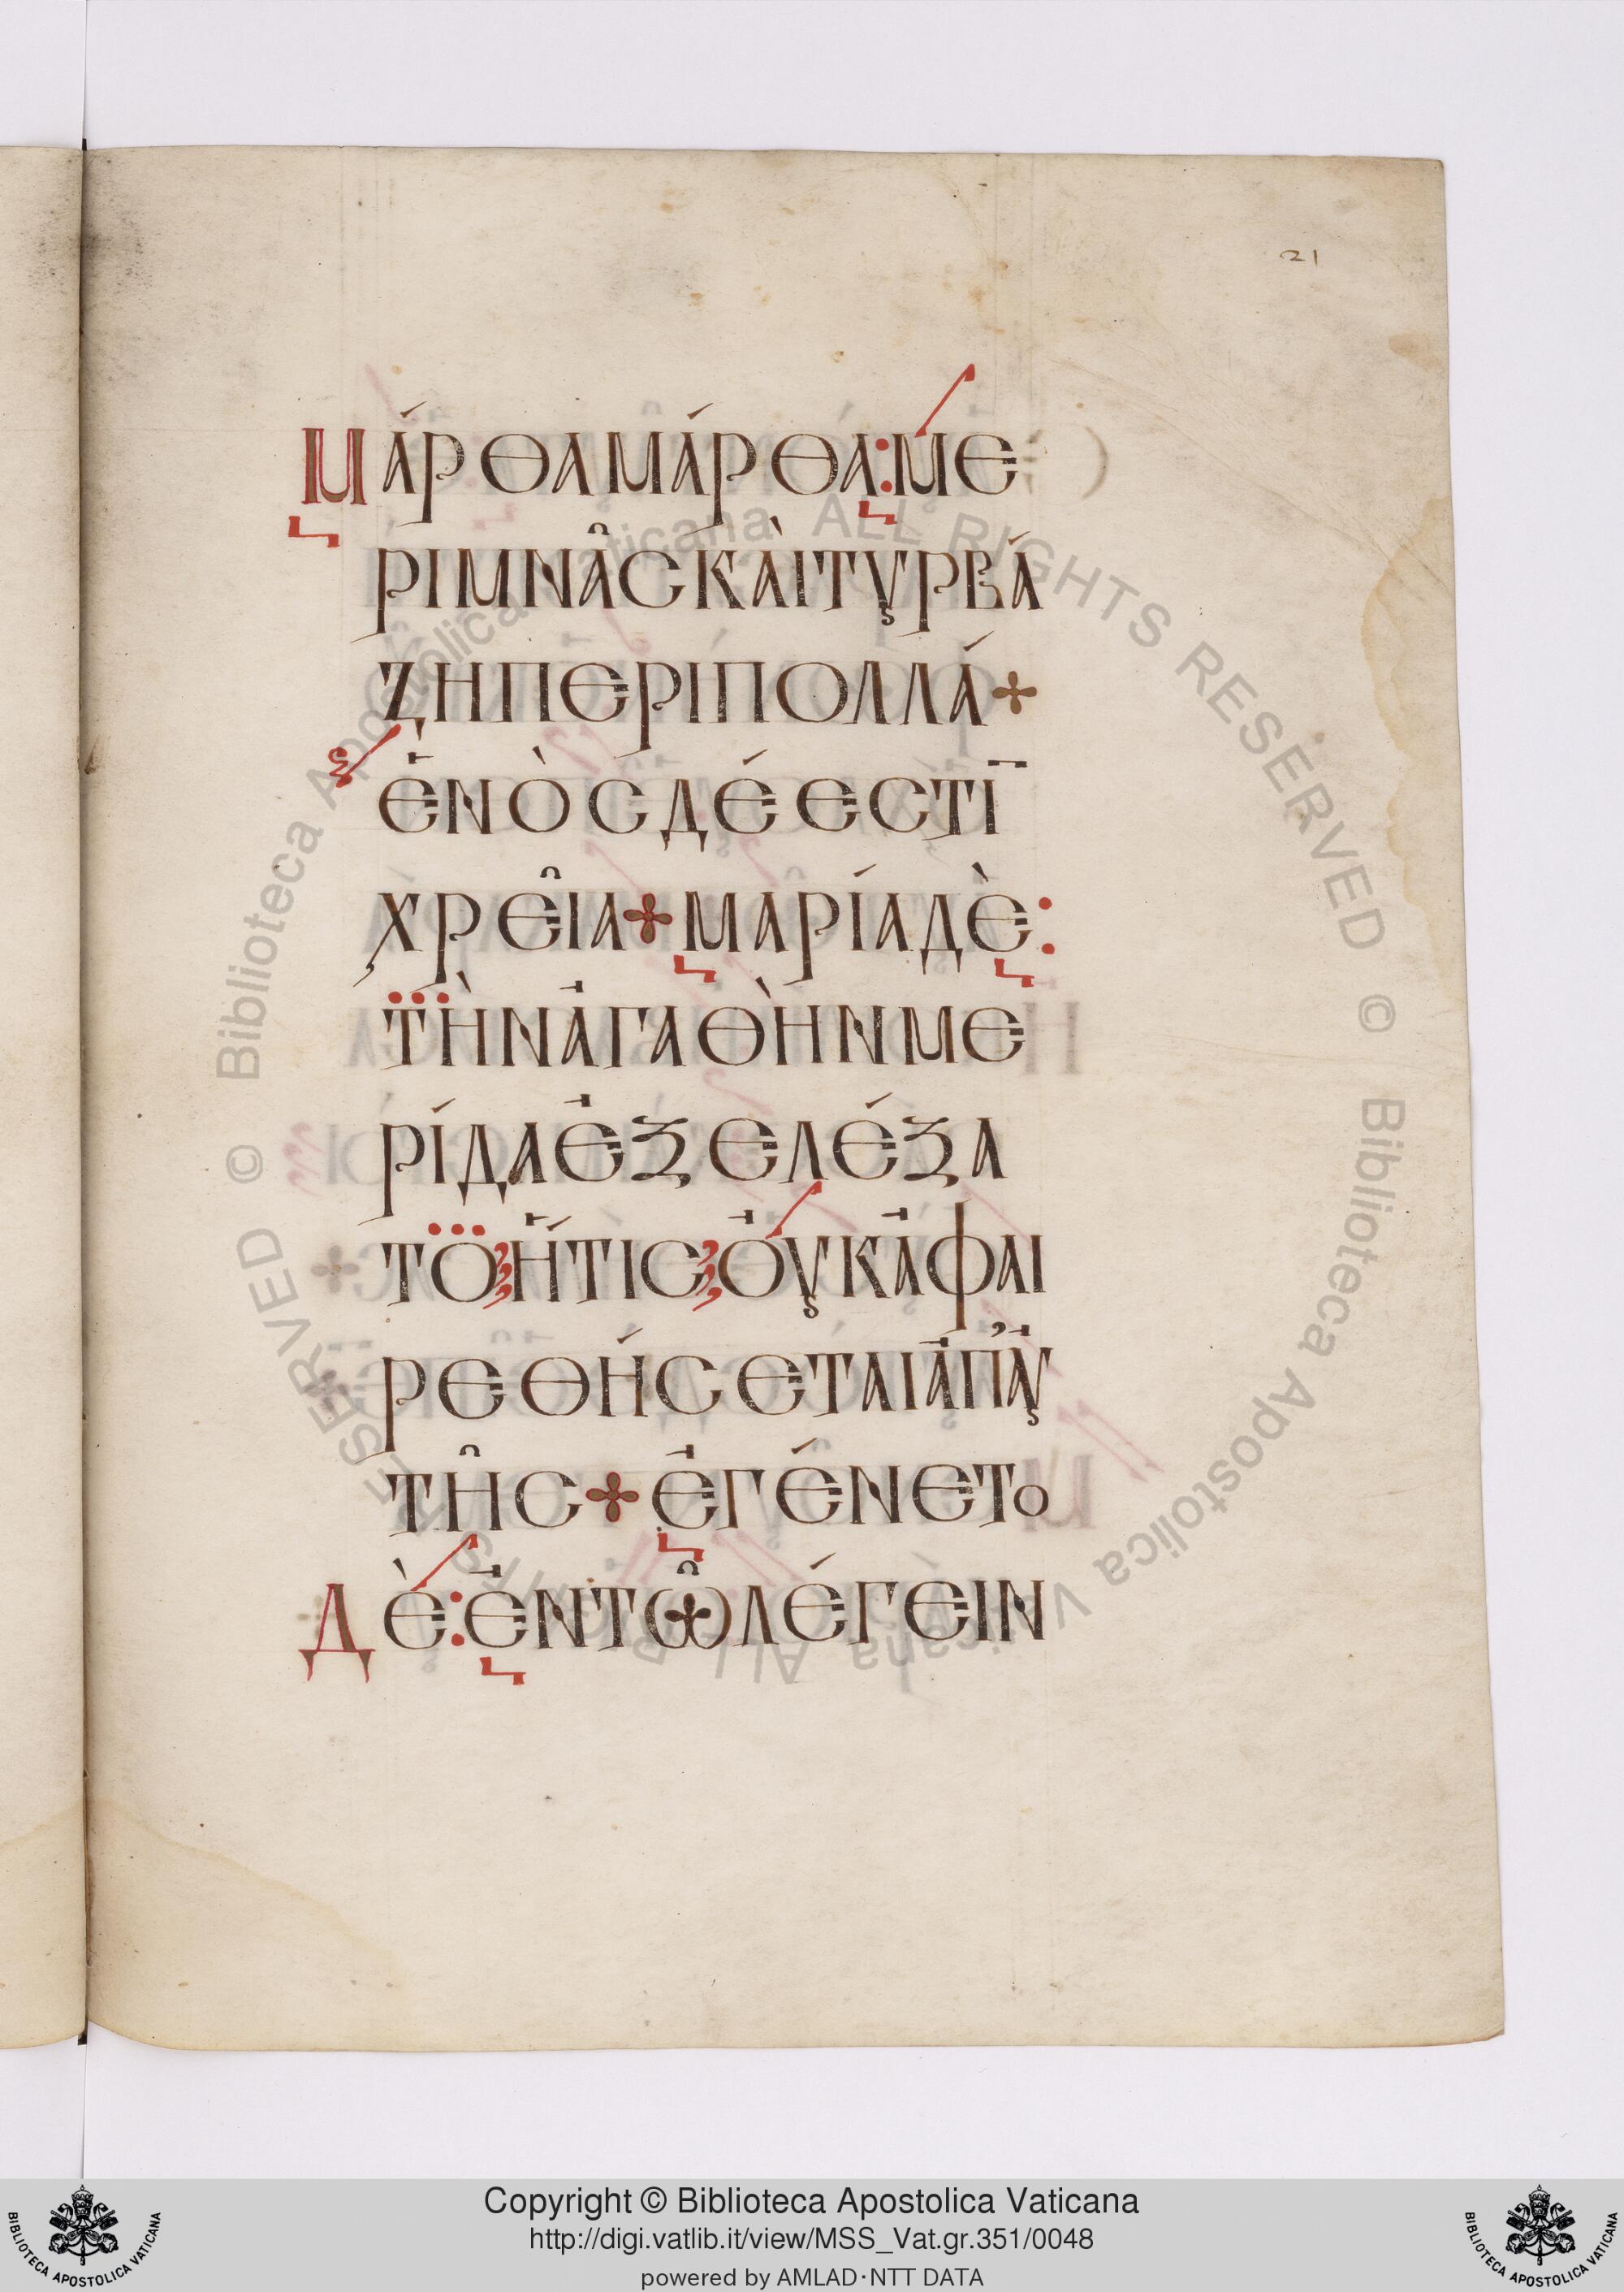 21
Μάρθα μάρθα: με
ριμνᾶς καὶ τυρβά
ζη περὶ πολλά +
ἑνὸς δέ εστῒ
χρεῖα + μαρία δὲ:
τὴν ἀγαθὴν με
ρίδα ἐξελέξα
το ἥτις οὐκ ἀφαι
ρεθήσεται ἀπ' ἀυ
τῆς + ἐγένετο
Δὲ: ἐν τῶ λέγειν
© Biblioteca Apostolica Vaticana ALL RIGHTS RESERVED © Biblioteca Apostolica Vaticana ALL RIGHTS RESERVED
Copyright © Biblioteca Apostolica Vaticana
http://digi.vatlib.it/view/MSS_Vat.gr.351/0048
powered by AMLAD·NTT DATA
BIBLIOTECA APOSTOLICA VATICANA
BIBLIOTECA APOSTOLICA VATICANA